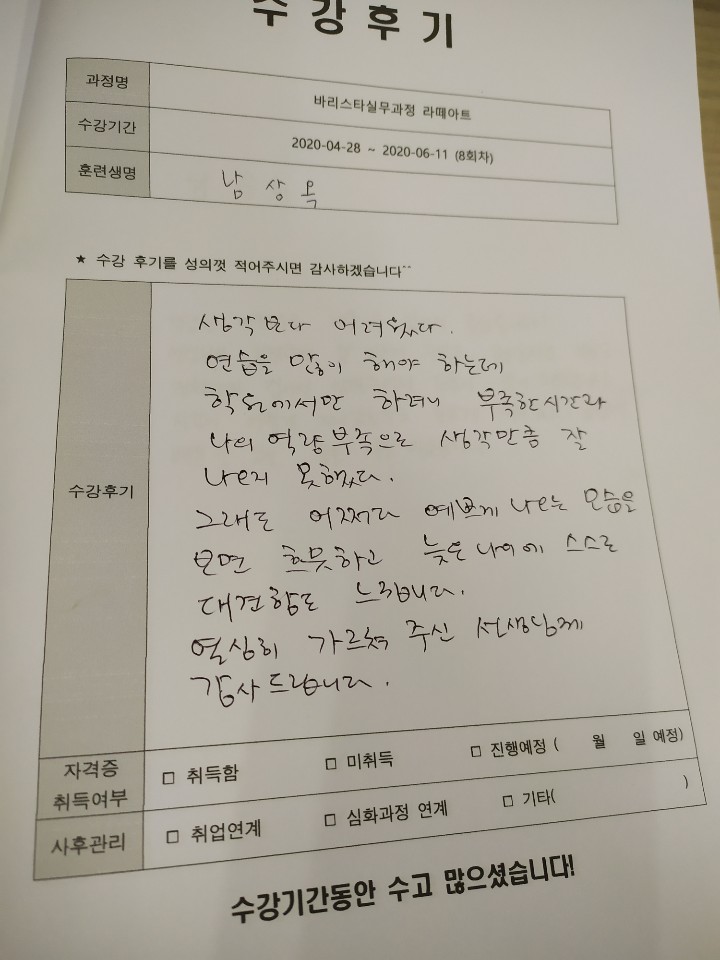 수강후기
과정명 바리스타실무과정 라떼아트
수강기간 2020-04-28 ~ 2020-06-11 (8회차)
훈련생명 남상옥
★ 수강 후기를 성의껏 적어주시면 감사하겠습니다^^
수강후기
생각보다 어려웠다.
연습을 많이 해야 하는데
학원에서만 하려니 부족한 시간과
나의 역량부족으로 생각만큼 잘
나오지 못했다.
그래도 어쩌다 예쁘게 나오는 모습을
보면 흐뭇하고 늦은 나이에 스스로
대견함도 느낍니다.
열심히 가르쳐 주신 선생님께
감사드립니다.
자격증 취득여부 □ 취득함 □ 미취득 □ 진행예정 ( 월 일 예정)
사후관리 □ 취업연계 □ 심화과정 연계 □ 기타( )
수강기간동안 수고 많으셨습니다!